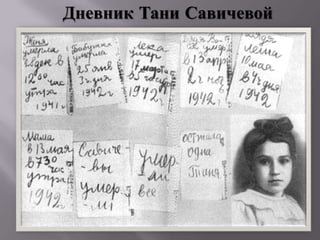 Дневник Тани Савичевой
Женя
умерла
28 дек в
12 00 час
утра
1941 г
Бабушка
умерла
25 янв
3 ч дня
1942 г
Лека
умер
17 марта
в 5 час утр
1942 г
Дядя Вася
умер
в 13 апр
2 ч ноч
1942 г
Дядя
Леша
10 мая
в 4 ч дня
1942 г
Мама
в 13 мая
в 7 30
час
утра
1942 г
Савиче-
вы
умер-
ли
умер
ли
все
остала
одна
Таня